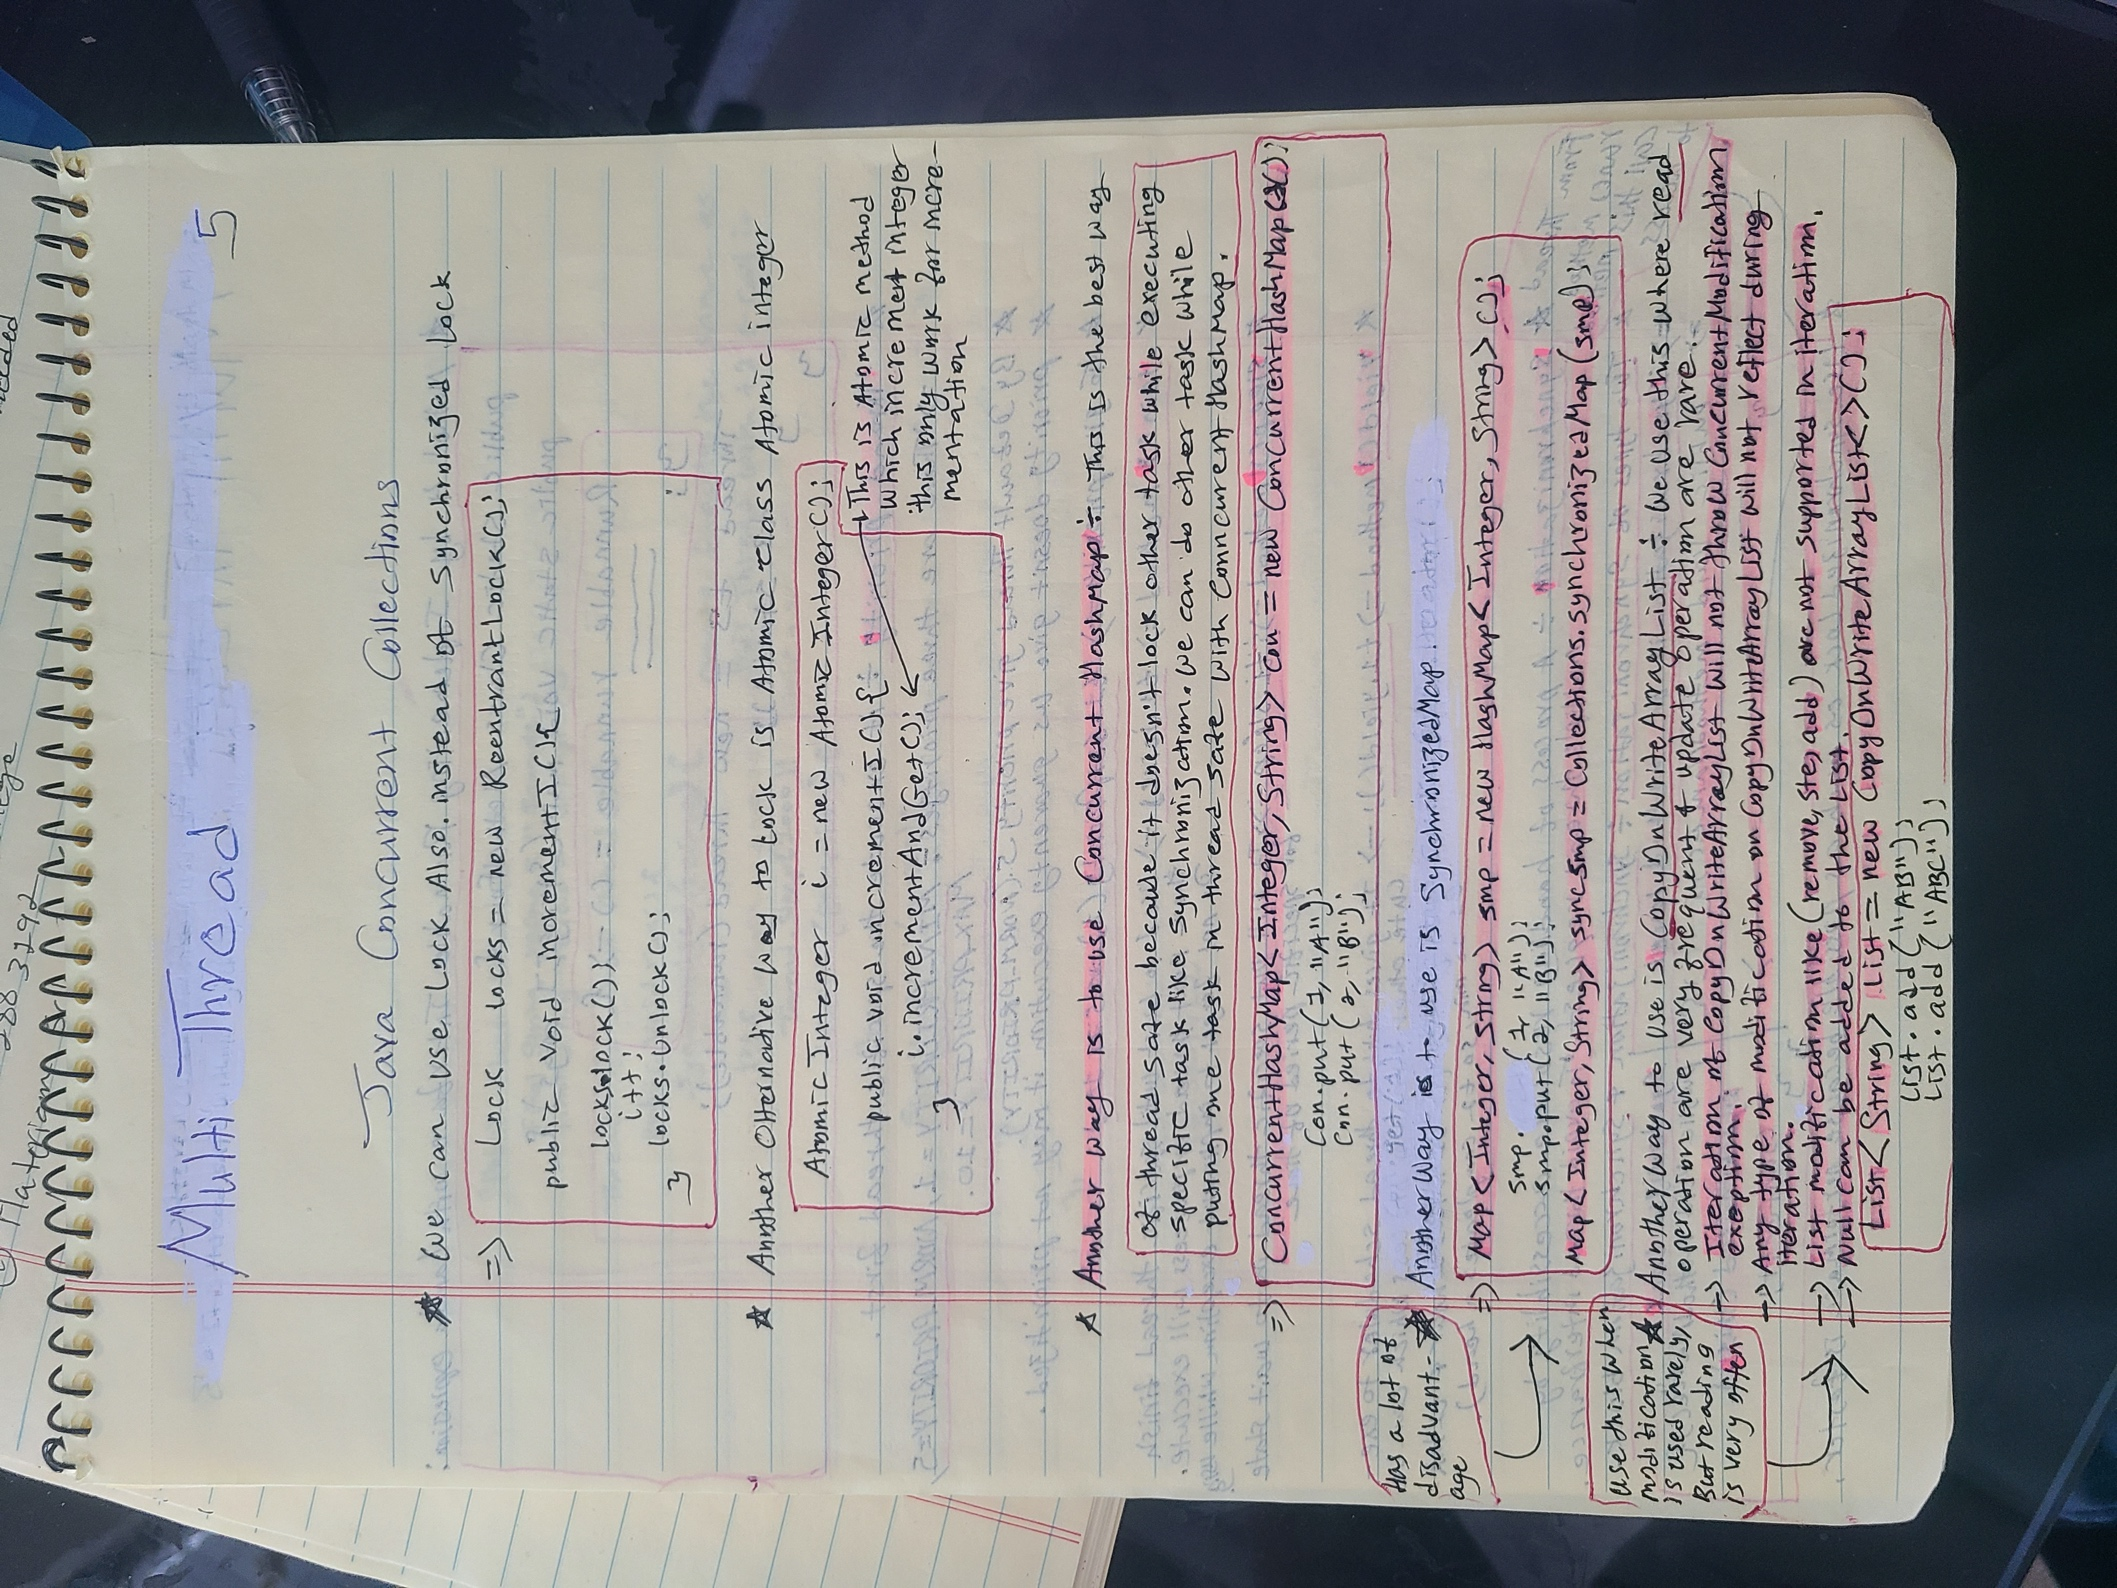 Multi Thread
5
Java Concurrent Collections
★ We can use Lock Also. instead of Synchronized Lock
=> Lock locks = new ReentrantLock();
public void incrementI(){
locks.lock();
i++;
locks.unlock();
}
★ Another Alternative way to Lock is Atomic class Atomic integer
AtomicInteger i = new AtomicInteger();
public void incrementI(){
i.incrementAndGet();
}
This is Atomic method
which increment integer
this only work for incre-
mentation
★ Another way is to use Concurrent HashMap ÷ This is the best way
of thread safe because it doesn't lock other task while executing
specific task like synchronization. We can do other task while
puting one task in thread safe with Concurrent HashMap.
=> ConcurrentHashMap<Integer, String> con = new ConcurrentHashMap<>();
Con.put(1, "A");
Con.put(2, "B");
Has a lot of
disadvant-
age
★ Another Way is to use is SynchronizedMap
=> Map<Integer, String> smp = new HashMap<Integer, String>();
smp. (1, "A");
smp.put(2, "B");
Map<Integer, String> syncsmp = Collections.synchronizedMap(smp);
use this when
modification
is used rarely,
But reading
is very often
★ Another Way to use is CopyOnWriteArrayList ÷ We use this where read
operation are very frequent & update operation are rare.
-> Iteration of CopyOnWriteArrayList will not throw ConcurrentModification
exeption.
-> Any type of modification on CopyOnWriteArrayList will not reflect during
iteration.
-> List modification like (remove, ste, add) are not supported in iteration.
-> Null can be added to the List.
List<String> list = new CopyOnWriteArrayList<>();
list.add("AB");
list.add("ABC");
288 3292